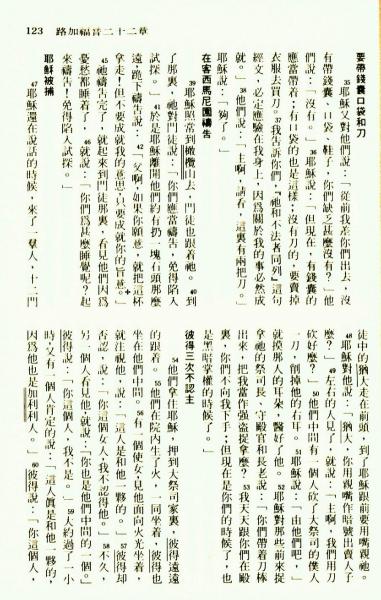 123 路加福音二十二章
要帶錢囊口袋和刀
35耶穌又對他們說:「從前我差你們出去,沒
有帶錢囊、口袋、鞋子,你們缺乏甚麼沒有?」他
們說:「沒有。」36耶穌說:「但現在,有錢囊的
應當帶着;有口袋的也是這樣;沒有刀的,要賣掉
衣服去買刀。37我告訴你們,『祂和不法者同列』這句
經文,必定應驗在我身上,因爲關於我的事必然成
就。」38他們說:「主啊,請看,這裏有兩把刀。」
耶穌說:「夠了。」
在客西馬尼園禱告
39耶穌照常到橄欖山去,門徒也跟着祂。40到
了那裏,祂對門徒說:「你們應當禱告,免得陷入
試探。」41於是耶穌離開他們約有扔一塊石頭那麼
遠,跪下禱告說:42「父啊,如果你願意,就把這杯
拿走!但不要成就我的意思,只要成就你的旨意。」+
45祂禱告完了,就起來到門徒那裏,看見他們因爲
憂愁都睡着了,46就說:「你們爲甚麼睡覺呢?起
來禱告!免得陷入試探。」
耶穌被捕
47耶穌還在說話的時候,來了一羣人,十二門
徒中的猶大走在前頭,到了耶穌跟前要用嘴親祂。
48耶穌對他說:「猶大,你用親嘴作暗號出賣人子
麼?」49左右的人見了,就說:「主啊,我們用刀
砍好麼?」50他們中間有一個人砍了大祭司的僕人
一刀,削掉他的右耳。51耶穌說:「由他們吧。」
就摸那人的耳朵,醫好了他。52耶穌對那些前來捉
拿祂的祭司長、守殿官和長老說:「你們帶着刀棒
出來,把我當作強盜捉拿麼?53我天天跟你們在殿
裏,你們不向我下手;但現在是你們的時候了,也
是黑暗掌權的時候了。」
彼得三次不認主
54他們拿住耶穌,押到大祭司家裏,彼得遠遠
的跟着。55他們在院內生了火,一同坐着,彼得也
坐在他們中間。56有一個使女見他面向火光坐着,
就注視他,說:「這人是和他一夥的。」57彼得却
否認,說:「你這個女人,我不認得他。」58不久,
另一個人看見他,就說:「你也是他們中間的一個。」
彼得說:「你這個人,我不是。」59大約過了一小
時,又有一個人肯定的說:「這人眞是和他一夥的,
因爲他也是加利利人。」60彼得說:「你這個人,